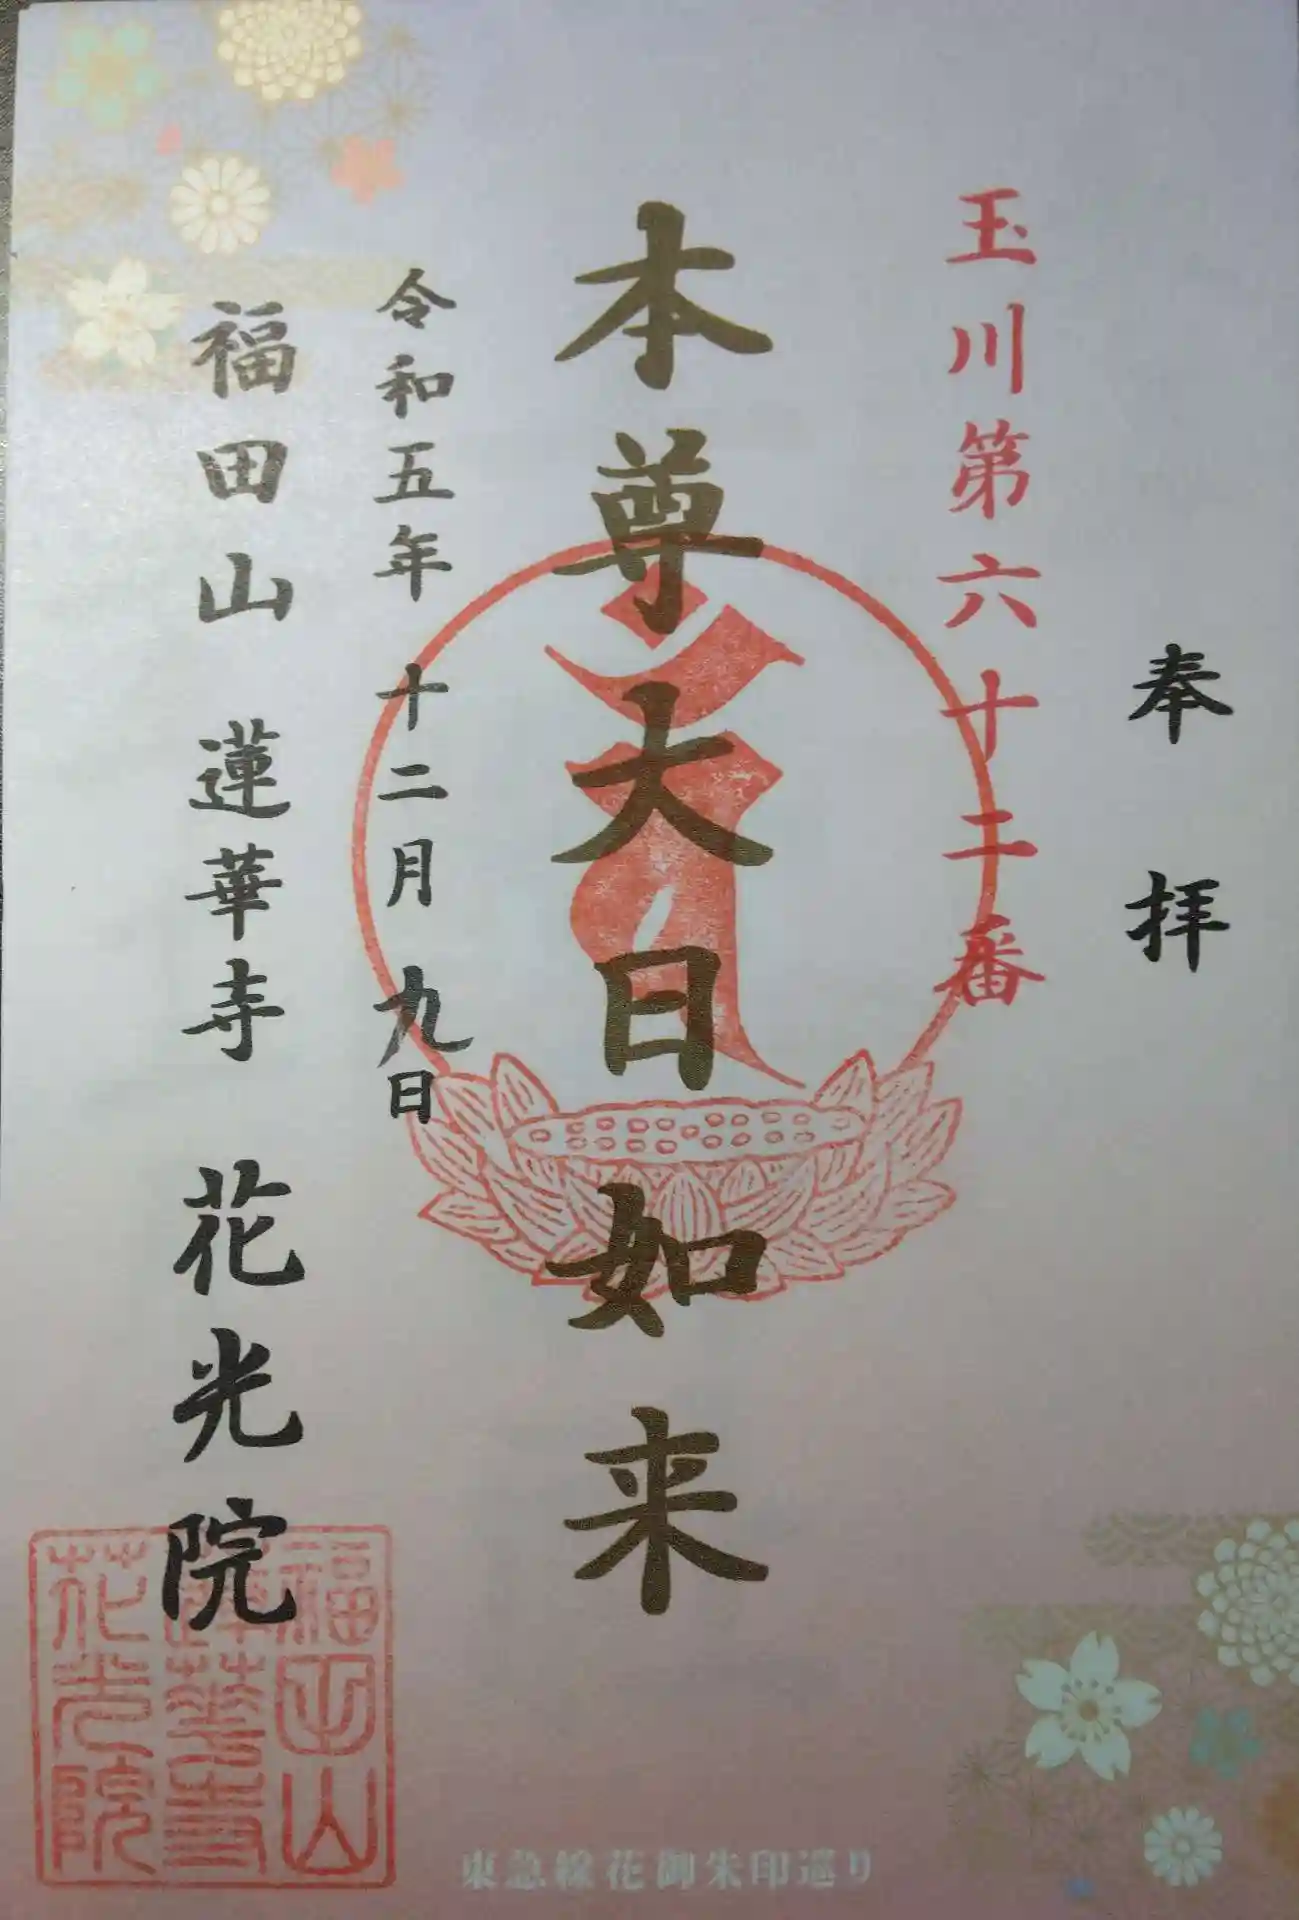 奉拝
玉川第六十二番
本尊大日如来
令和五年 十二月 九日
福田山 蓮華寺 花光院
福田山
蓮華寺
花光院
東急線花御朱印巡り